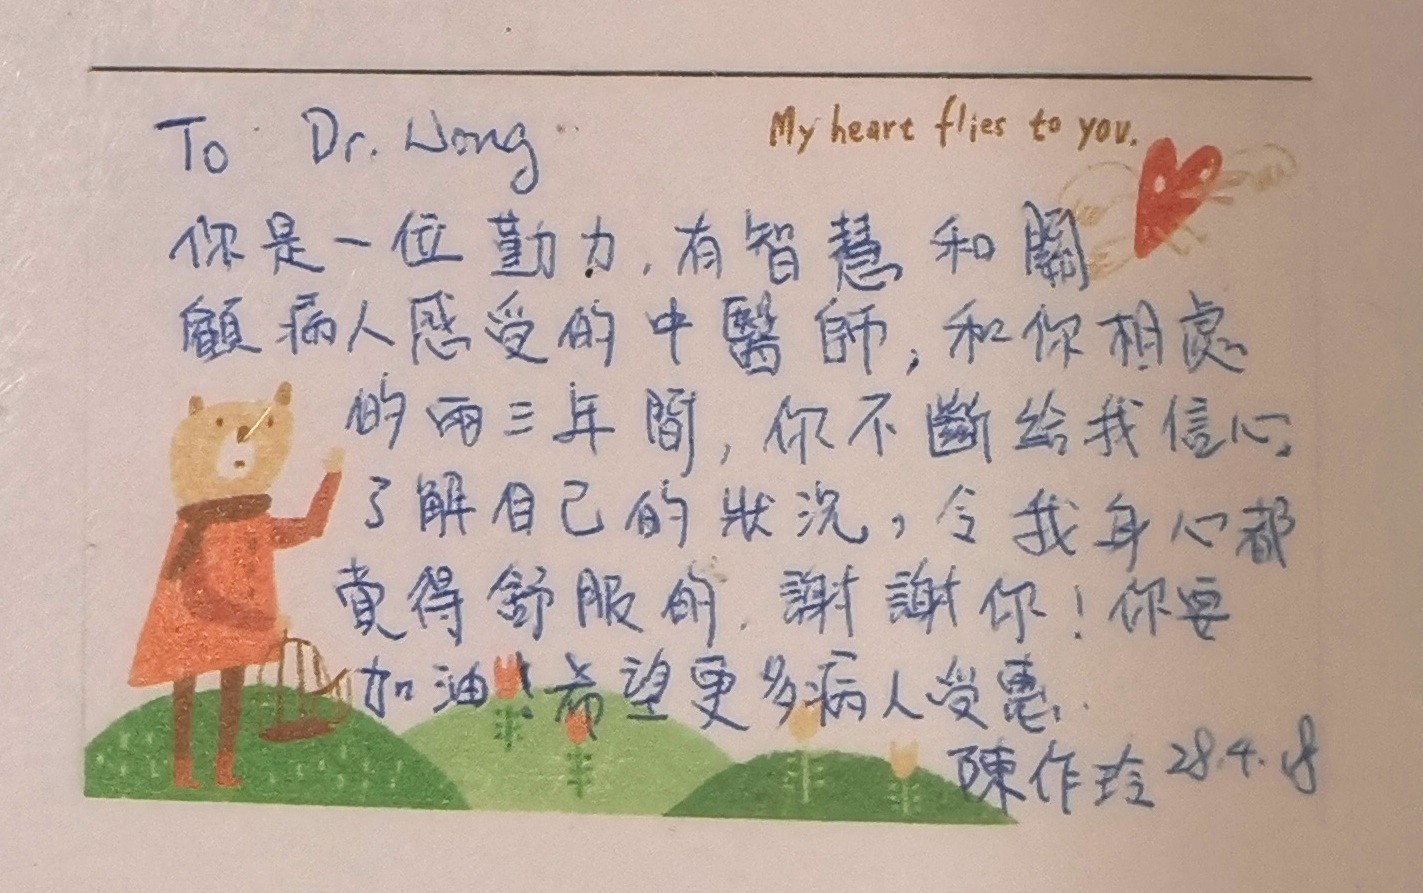 To Dr. Wong
My heart flies to you.
你是一位勤力，有智慧和關
顧病人感受的中醫師，和你相處
的兩三年間，你不斷給我信心，
了解自己的狀況，令我身心都
覺得舒服的，謝謝你！你要
加油！希望更多病人受惠，
陳作玲 28.4.18